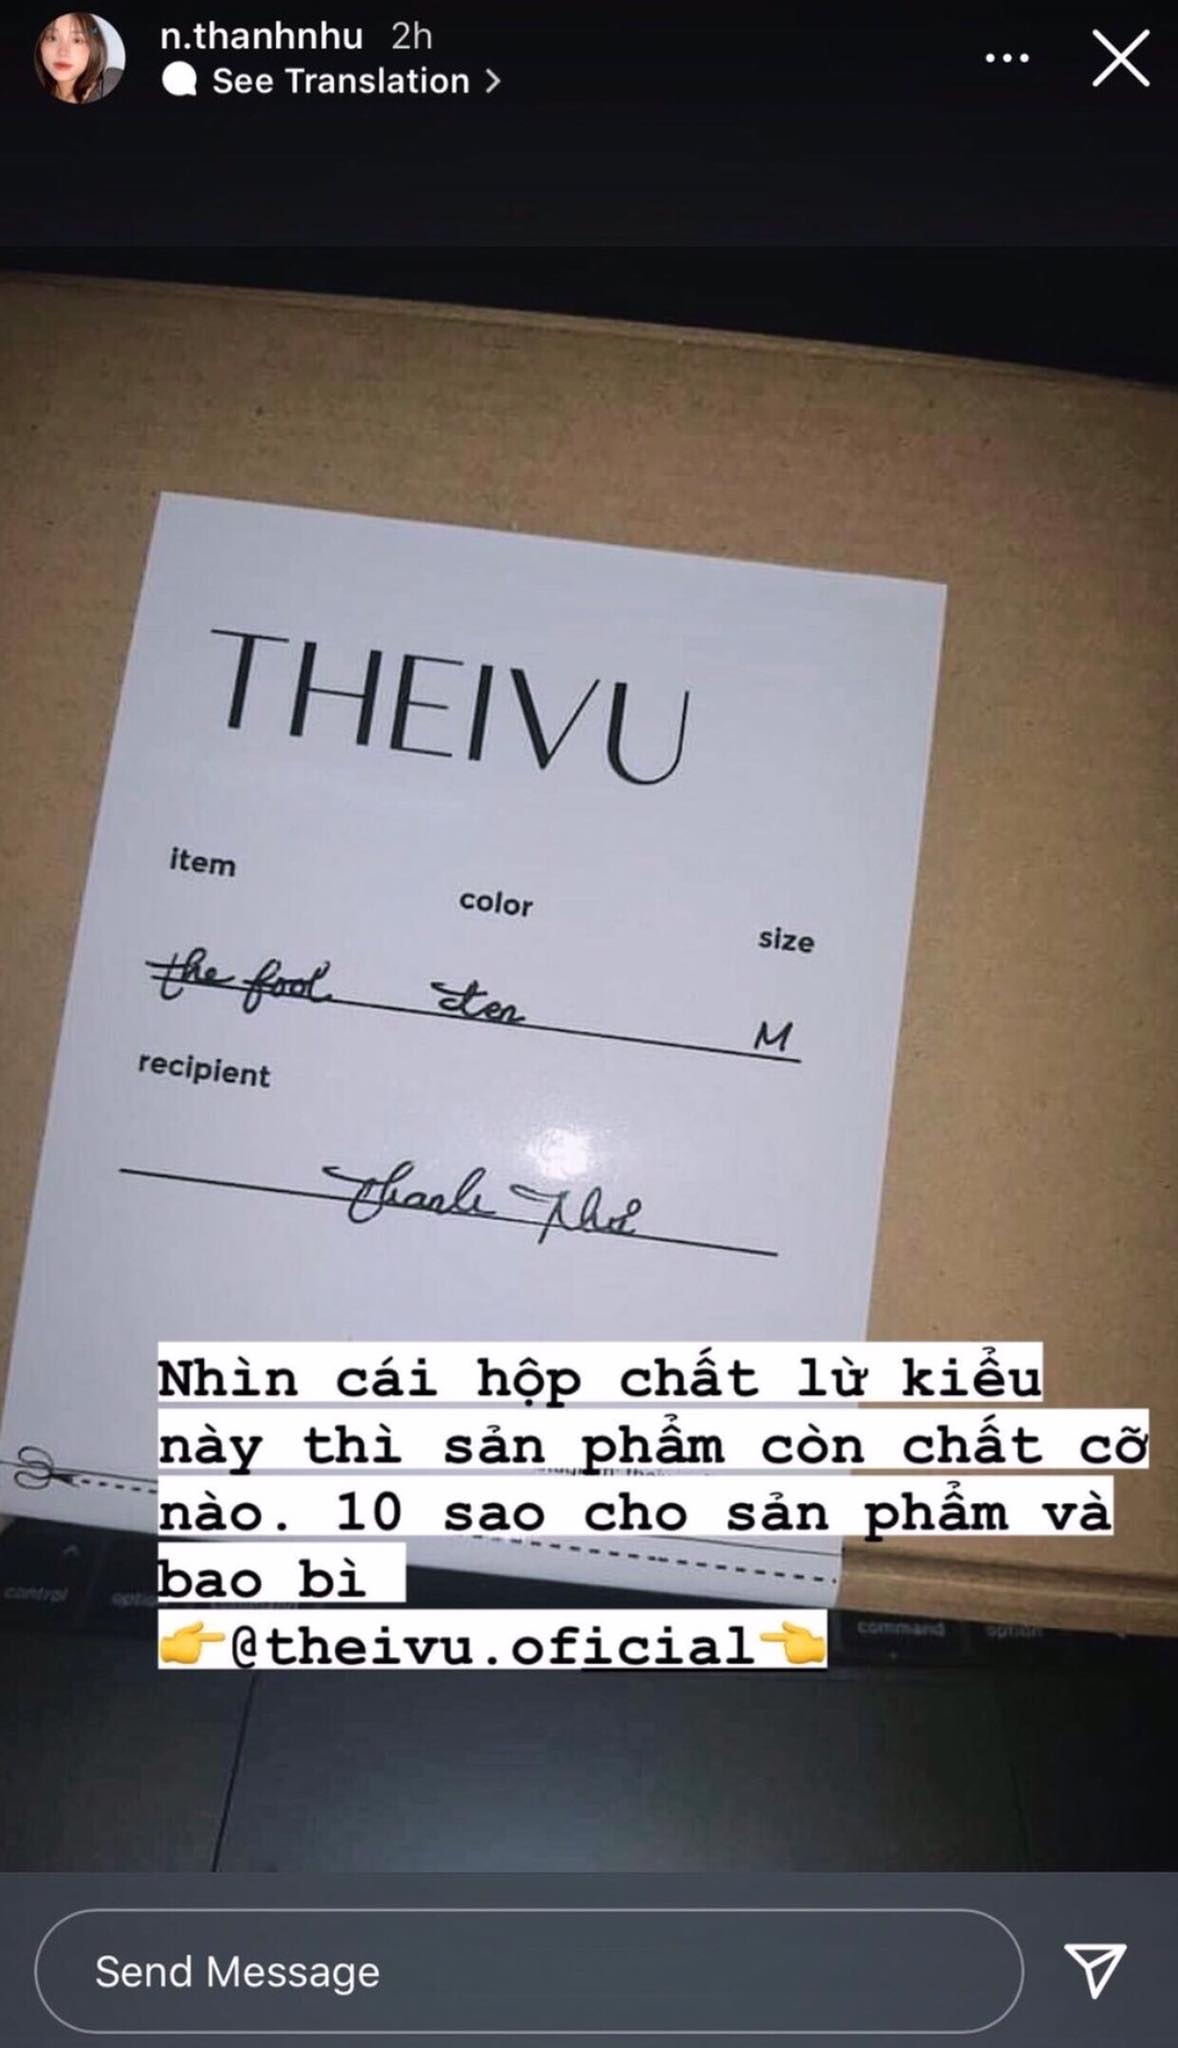 n.thanhnhu 2h
See Translation
THEIVU
item color size
the fool Đen M
recipient
Thanh Như
Nhìn cái hộp chất lừ kiểu
này thì sản phẩm còn chất cỡ
nào. 10 sao cho sản phẩm và
bao bì
👉@theivu.oficial👈
control
command option
Send Message